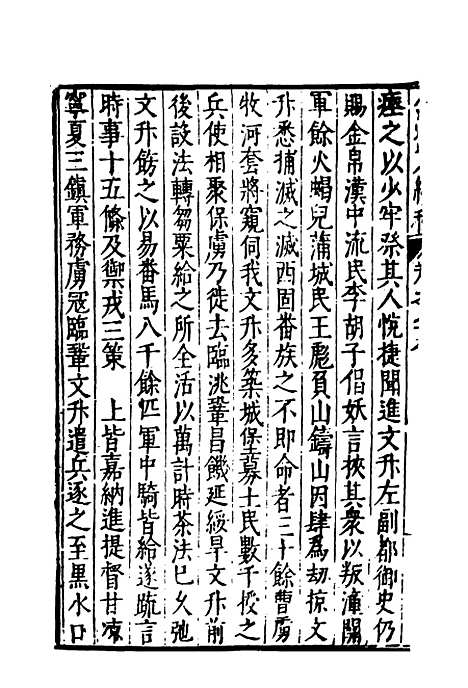 瘞之以少牢祭其人悅捷聞進文升左副都御史仍
賜金帛漢中流民李胡子倡妖言挾其衆以叛潼關
軍餘火蝎兒蒲城民王彪負山鑄山因肆爲劫掠文
升悉捕滅之滅西固番族之不即命者三十餘曹虜
牧河套將窺伺我文升多築城堡募土民數千授之
兵使相聚保虜乃徙去臨洮鞏昌饑延綏旱文升前
後設法轉芻粟給之所全活以萬計時茶法已久弛
文升飭之以易番馬八千餘匹軍中騎皆給遂疏言
時事十五條及禦戎三策 上皆嘉納進提督甘凉
寧夏三鎮軍務虜冦臨鞏文升遣兵逐之至黑水口